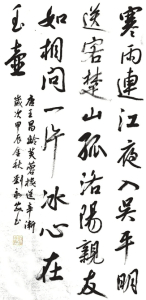 寒雨連江夜入吳平明
送客楚山孤洛陽親友
如相問一片冰心在
玉壺
唐王昌齡芙蓉樓送辛漸
歲次甲辰金秋劉